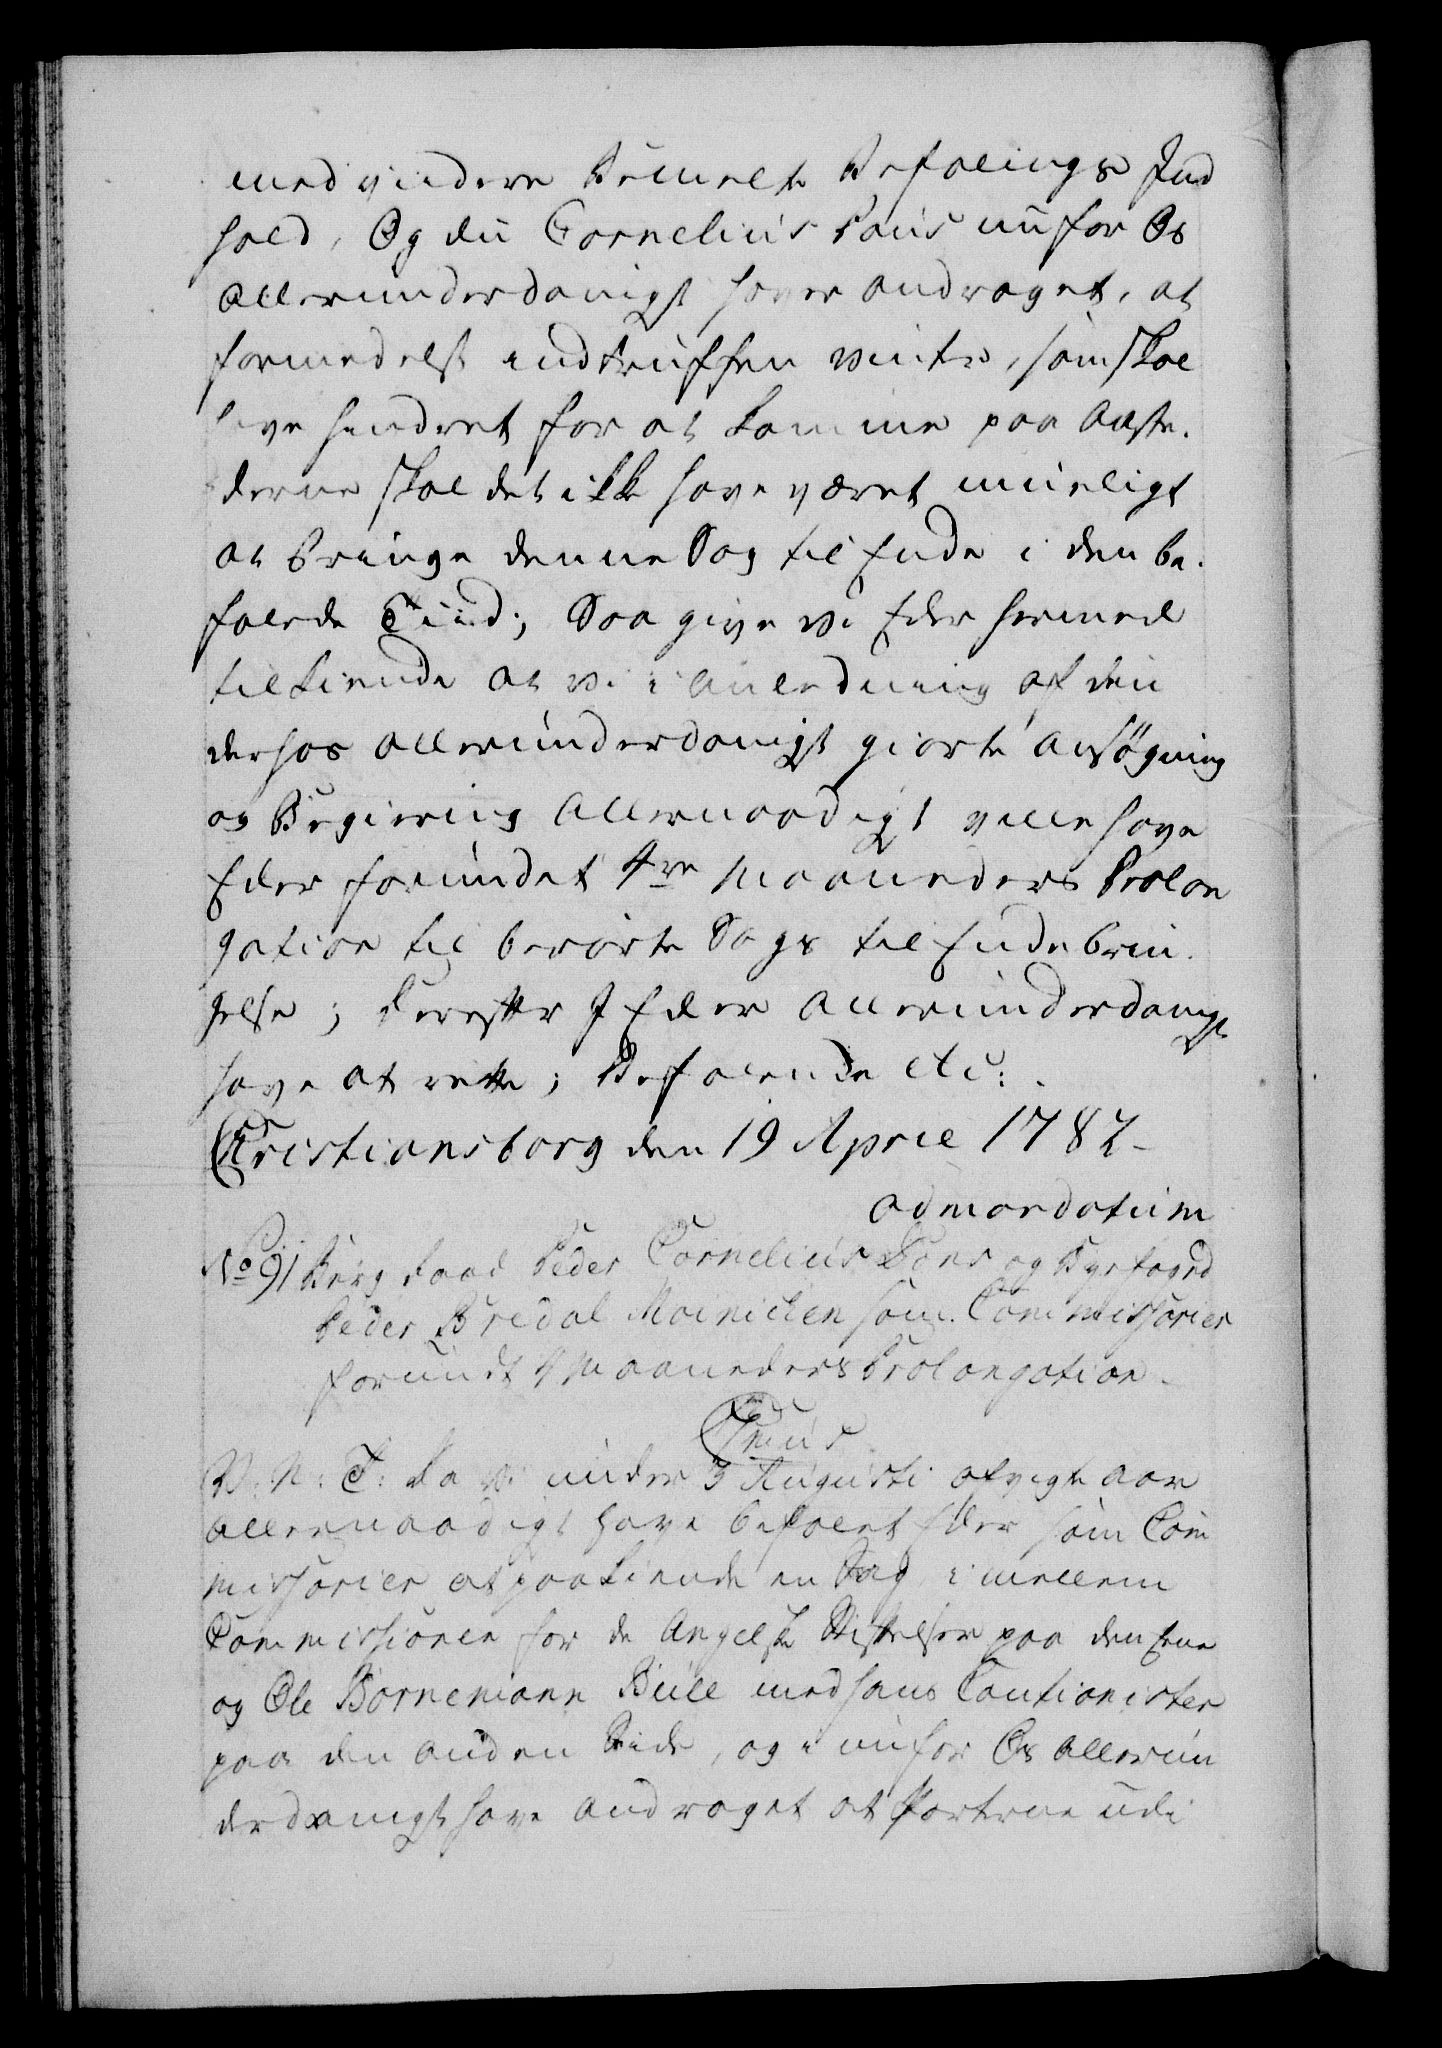 med videre bemelte Befalings Ind
hold, Og du Cornelius Paus nu for Os
allerunderdanigst haver andraget, at
formedelst indtruffen vinter, som skal
have hindret for at komme paa Aaste-
derne skal det ikke have været mueligt
at bringe denne Sag til Ende i den be-
falede Tiid; Saa give vi Eder hermed
tilkiende at vi i anledning af den
derhos allerunderdanigst giorte Ansøgning
og Begiering Allernaadigst ville have
Eder forundet 4re Maaneders Prolon
gation til berørte Sags til Endebrin-
gelse; derefter I Eder allerunderdanigst
have at rette; Befalende etc:
Christiansborg den 19 April 1782-
ad mandatum
No 91 Berg Raad Peder Cornelius Paus og Byefoged
Peder Bredal Moinichen som Commissarier
forundt 4 Maaneders Prolongation.
V. N: T: Da vi under 3 Augusti afvigte aar
allernaadigst have befalet Eder som Com
missarier at paakiende en Sag imellem
Commissionen for de Angelske Stiftelser paa den Ene
og Ole Bornemann Bull med hans Cautionister
paa den anden Side, og i nu for Os allerun
derdanigst have andraget at Parterne udi